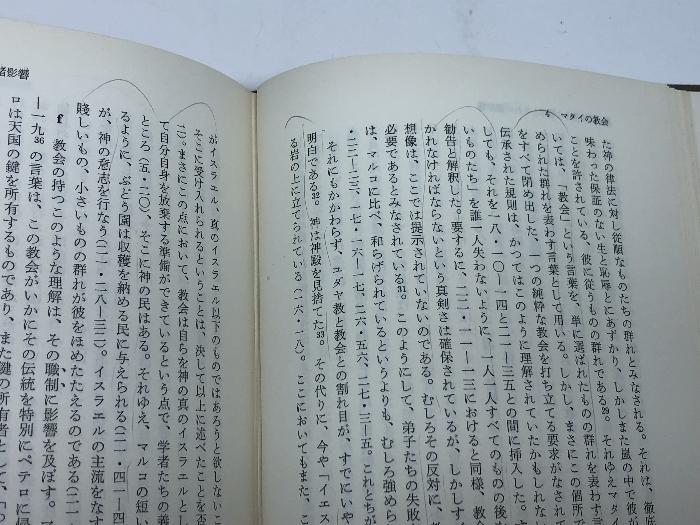 4 マタイの教会
た神の律法に対し従順なものたちの群れとみなされる。それは、徹
味わった保証のない生と恥辱とにあずかり、しかしまた嵐の中で彼が
ことを許されている、彼に従うものの群れである29。それゆえマタ
いては、「教会」という言葉を、単に選ばれたものの群れを表わす
められた群れを表わす言葉として用いる。しかし、まさにこの個所で
をすべて閉め出した、一つの純粋な教会を打ち立てる要求がなされて
伝承された規則は、かつてはこのように理解されていたかもしれな
しても、それを一八・一〇―一四と二一―三五との間に挿入した。す
いものたち」を誰一人失わないように、一人一人すべてのものの後め
勧告と解釈した。要するに、二二・一一―一三におけると同様、教会
かれなければならないという真剣さは確保されているが、しかしす
想像は、ここでは提示されていないのである。むしろその反対に、
必要であるとみなされている31。このようにして、弟子たちの失敗
は、マルコに比べ、和らげられているというよりも、むしろ強めら
・二二―二三、一七・一六―一七、二六・五六、二七・三―五。これとちが
それにもかかわらず、ユダヤ教と教会との割れ目が、すでにいや
明白である32。神は神殿を見捨てた33。その代りに、今や「イエス
る岩の上に立てられている(一六・一八)。ここにおいてもまた、こ
者影響
がイスラエル、真のイスラエル以下のものではあろうと欲しないこ
そこに受け入れられるということは、決して以上に述べたことを否
二)。まさにこの点において、教会は自らを神の真のイスラエルとし
て自分自身を放棄する準備ができているという点で、学者たちの義
ところ(五・二〇)、そこに神の民はある。それゆえ、マルコの短い
るように、ぶどう園は収穫を納める民に与えられる(二一・四一―四
が、神の意志を行なう(二一・二八―三二)。イスラエルの主流をなす
賤しいもの、小さいものの群れが彼をほめたたえるのである(二一
f 教会の持つこのような理解は、その職制に影響を及ぼす。マ
―一九36の言葉は、この教会がいかにその伝統を特別にペテロに帰
ロは天国の鍵を所有するものであり、また鍵の所有者として、「つ